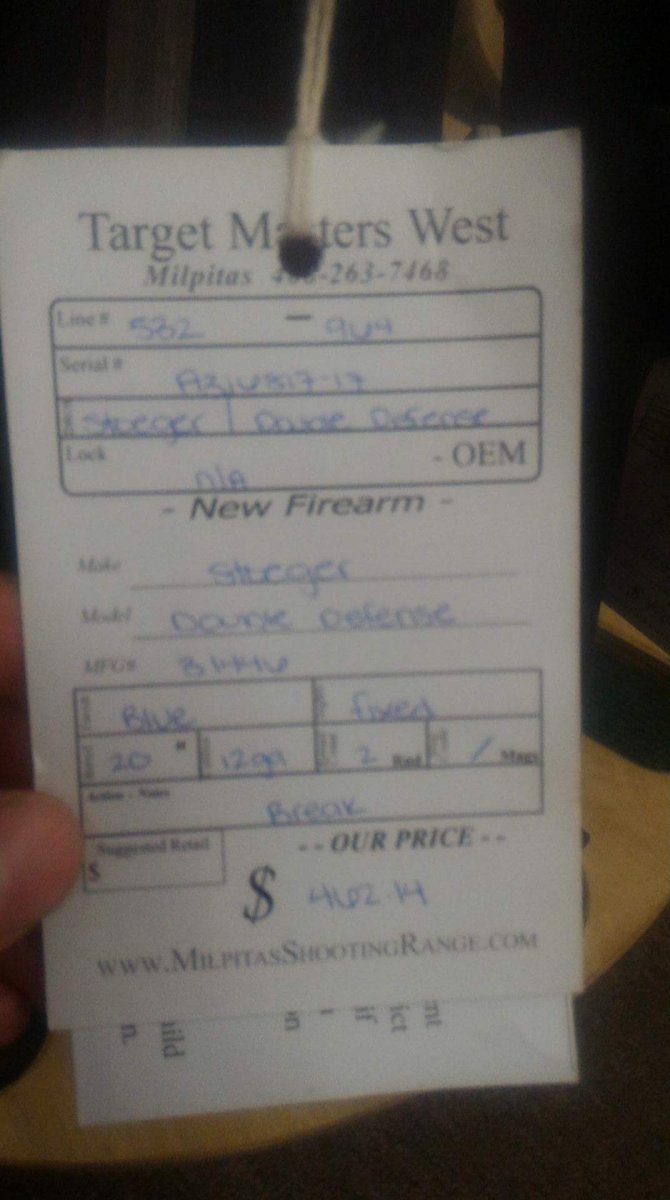 Target Masters West
Milpitas 408-263-7468
Line # 532 - 964
Serial #
Stoeger Double Defense
Lock n/a - OEM
- New Firearm -
Make Stoeger
Model Double Defense
MFG# 31446
Blue fixed
20 " 12ga 2 Rnd / Mags
Action - Notes
Break
Suggested Retail
$
-- OUR PRICE --
$ 462.14
WWW.MILPITASSHOOTINGRANGE.COM
n. uild on if ict nt